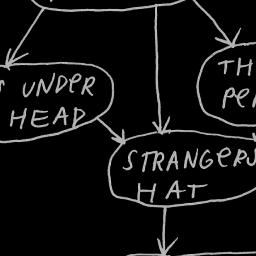 UNDER
HEAD
TH
PE
STRANGERS
HAT